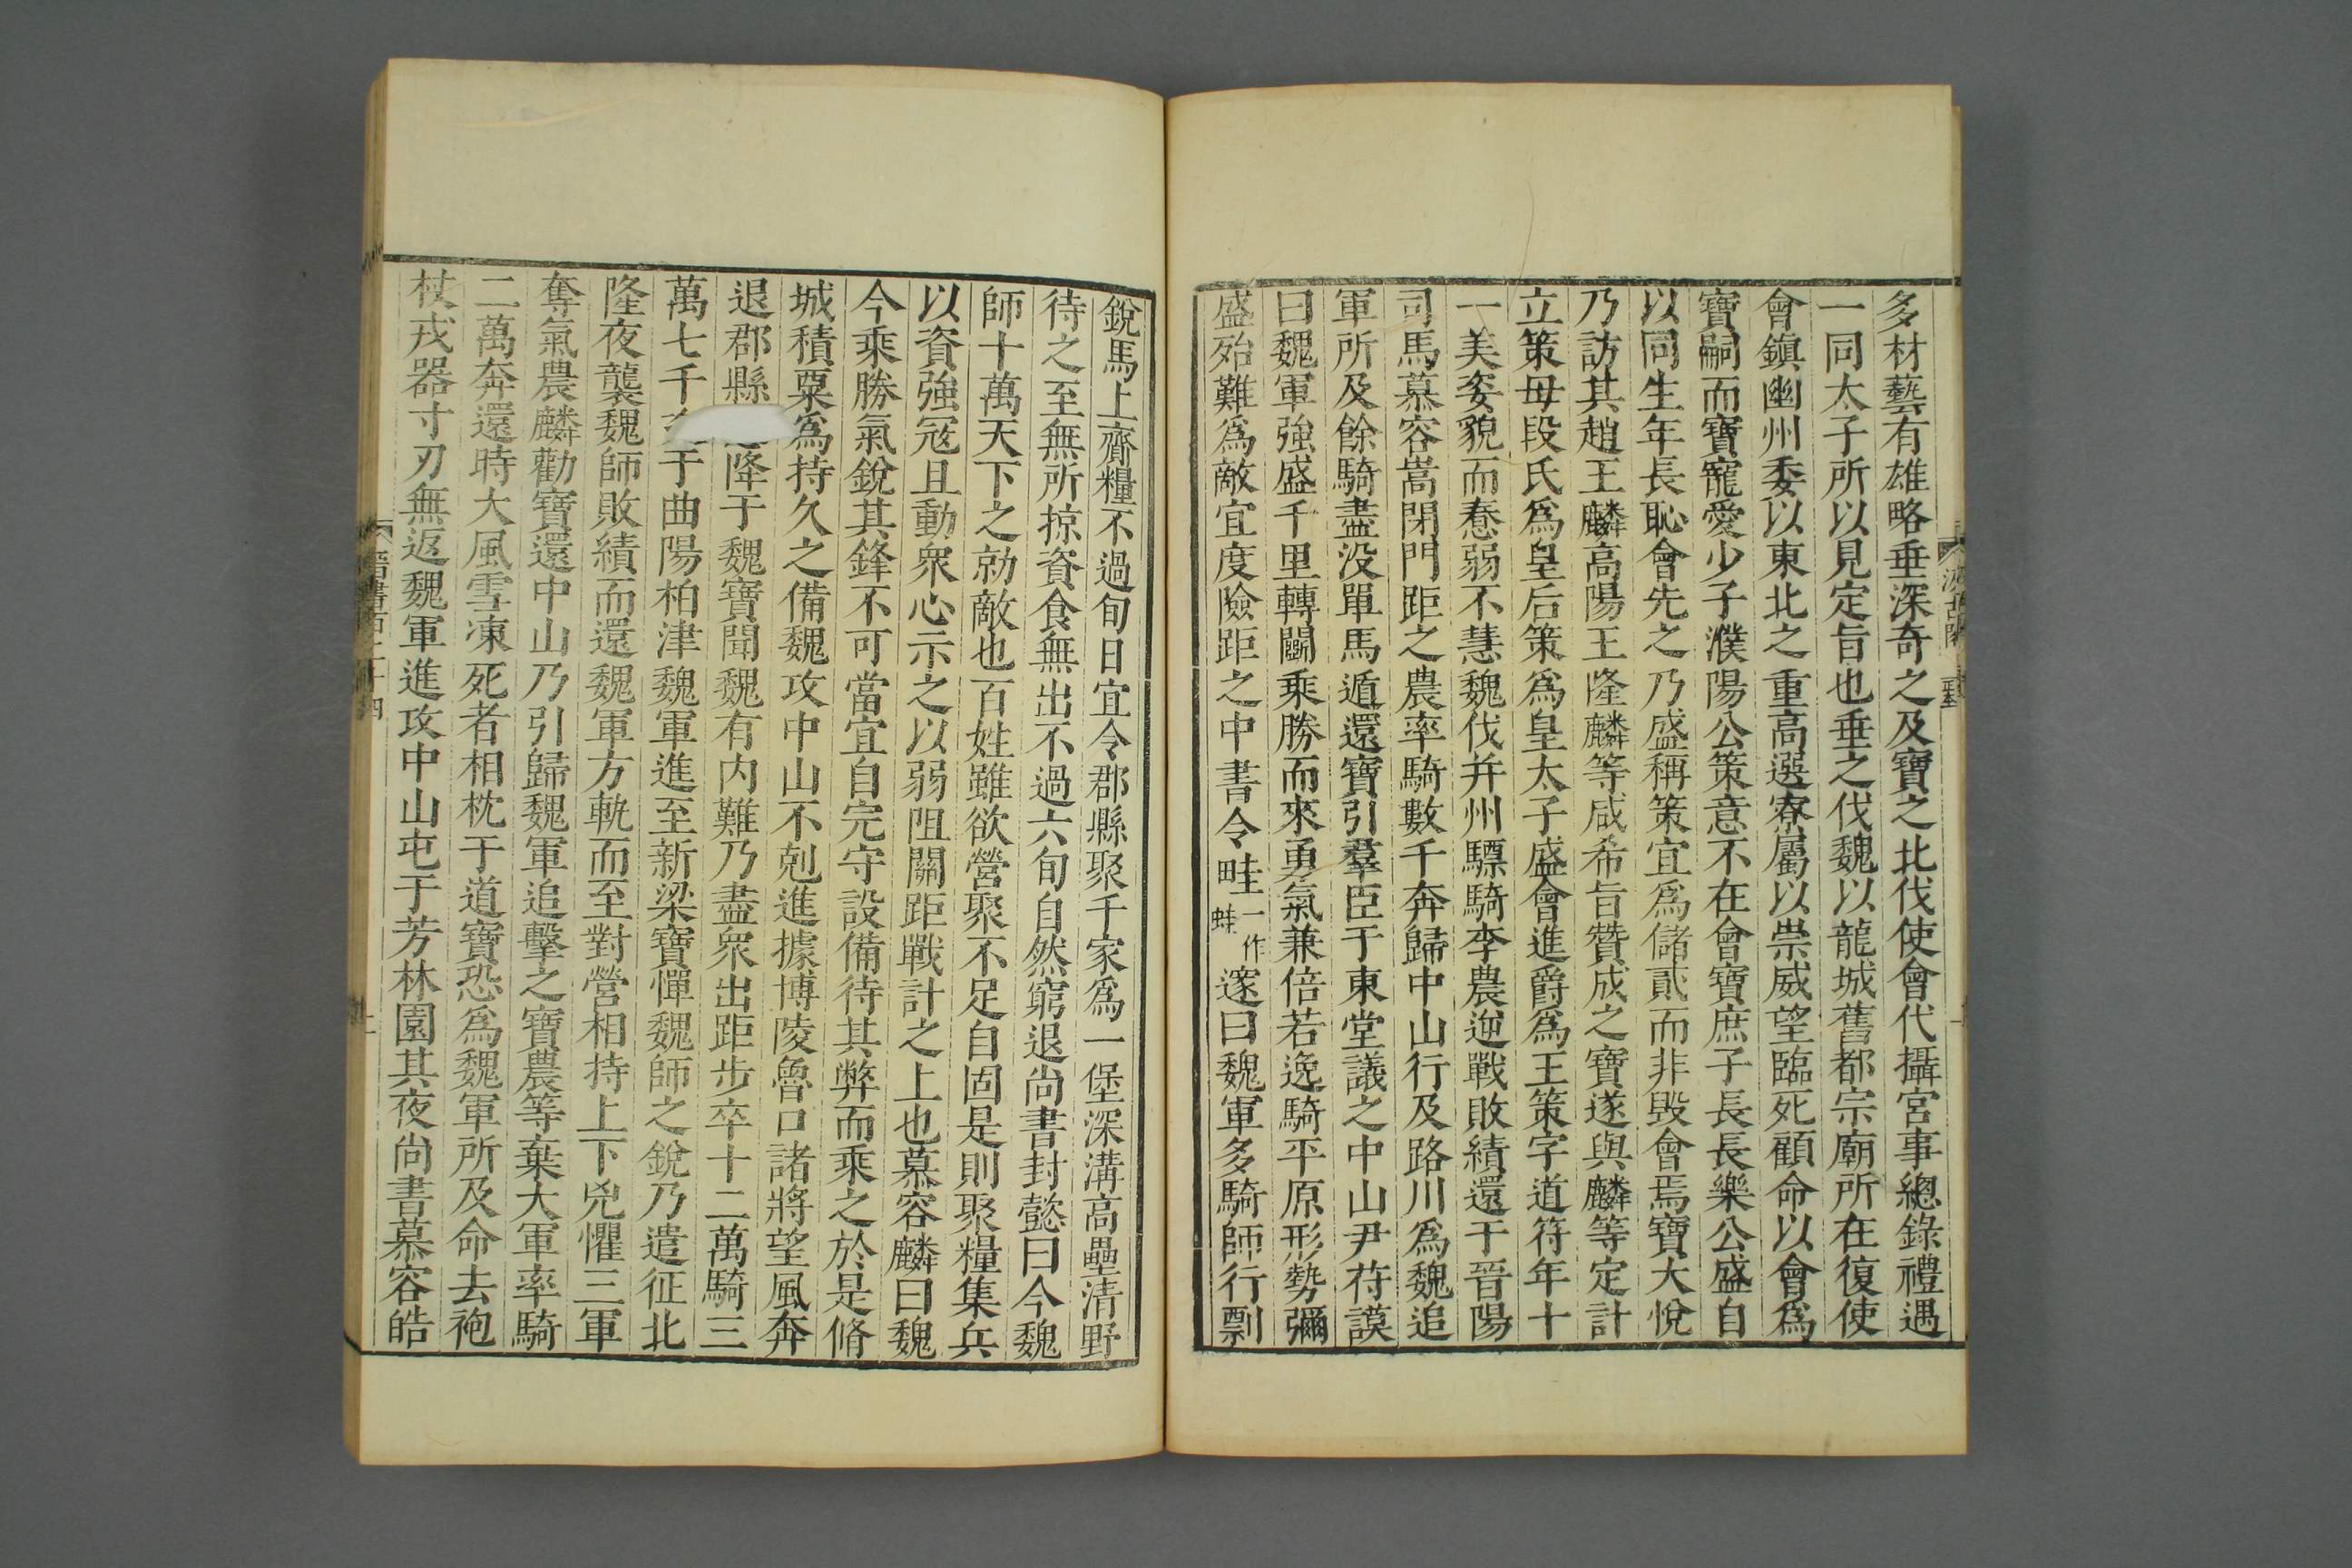 多材藝有雄略垂深奇之及寶之北伐使會代攝宮事總錄禮遇
一同太子所以見定旨也垂之伐魏以龍城舊都宗廟所在復使
會鎮幽州委以東北之重高選寮屬以崇威望臨死顧命以會爲
寶嗣而寶寵愛少子濮陽公策意不在會寶庶子長長樂公盛自
以同生年長恥會先之乃盛稱策宜爲儲貳而非毀會焉寶大悅
乃訪其趙王麟高陽王隆麟等咸希旨贊成之寶遂與麟等定計
立策母段氏爲皇后策爲皇太子盛會進爵爲王策字道符年十
一美姿貌而惷弱不慧魏伐幷州驃騎李農逆戰敗績還于晉陽
司馬慕容嵩閉門距之農率騎數千奔歸中山行及路川爲魏追
軍所及餘騎盡没單馬遁還寶引羣臣于東堂議之中山尹苻謨
曰魏軍強盛千里轉鬭乘勝而來勇氣兼倍若逸騎平原形勢彌
盛殆難爲敵宜度險距之中書令畦一作蛙邃曰魏軍多騎師行剽
銳馬上齎糧不過旬日宜令郡縣聚千家爲一堡深溝高壘清野
待之至無所掠資食無出不過六旬自然窮退尚書封懿曰今魏
師十萬天下之勍敵也百姓雖欲營聚不足自固是則聚糧集兵
以資強寇且動衆心示之以弱阻關距戰計之上也慕容麟曰魏
今乘勝氣銳其鋒不可當宜自完守設備待其弊而乘之於是脩
城積粟爲持久之備魏攻中山不剋進據博陵魯口諸將望風奔
退郡縣降于魏寶聞魏有内難乃盡衆出距步卒十二萬騎三
萬七千于曲陽柏津魏軍進至新梁寶憚魏師之銳乃遣征北
隆夜襲魏師敗績而還魏軍方軌而至對營相持上下兇懼三軍
奪氣農麟勸寶還中山乃引歸魏軍追擊之寶農等棄大軍率騎
二萬奔還時大風雪凍死者相枕于道寶恐爲魏軍所及命去袍
杖戎器寸刃無返魏軍進攻中山屯于芳林園其夜尚書慕容皓
晉書百二十四